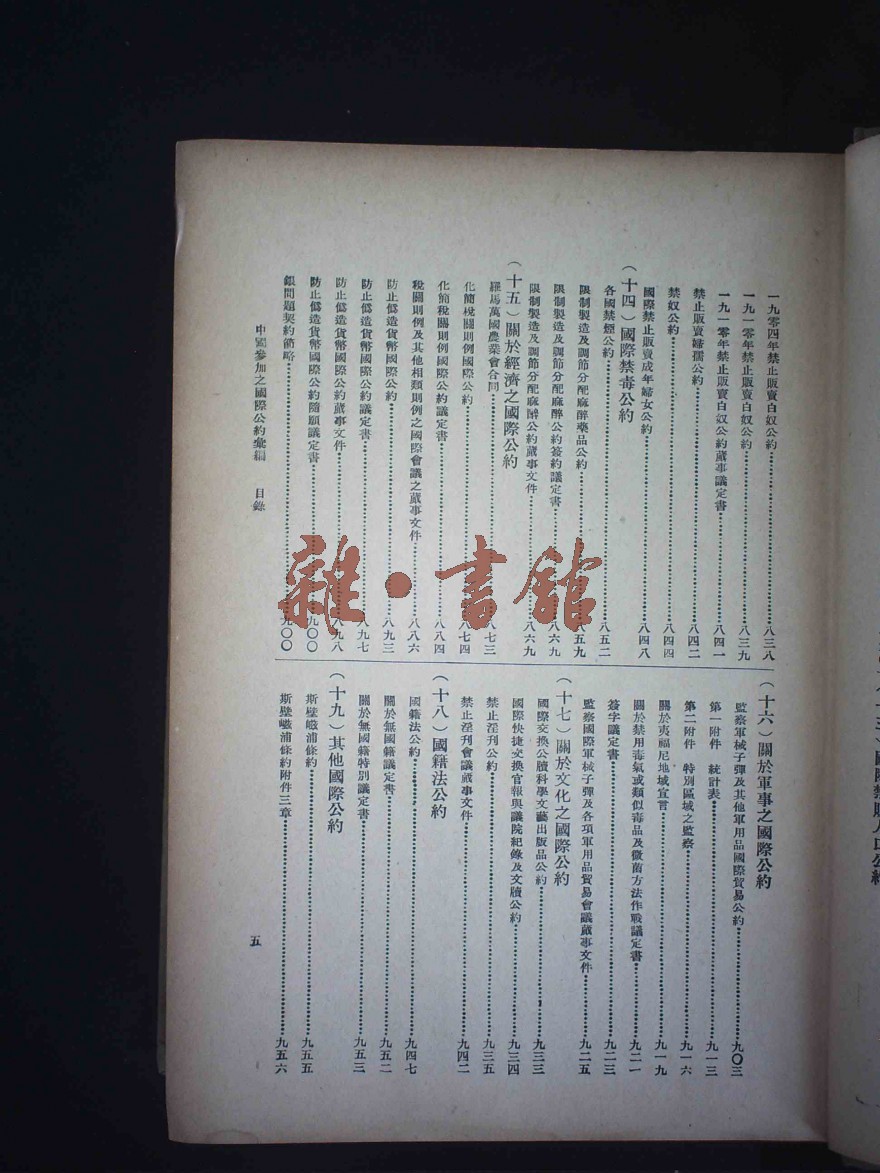 一九〇四年禁止販賣白奴公約……八三八
一九一〇年禁止販賣白奴公約……八三九
一九一〇年禁止販賣白奴公約蕆事議定書……八四一
禁止販賣婦孺公約……八四二
禁奴公約……八四四
國際禁止販賣成年婦女公約……八四八
(十四)國際禁毒公約
各國禁煙公約……八五二
限制製造及調節分配麻醉藥品公約……八五九
限制製造及調節分配麻醉公約簽約議定書……八六九
限制製造及調節分配麻醉公約蕆事文件……八六九
(十五)關於經濟之國際公約
羅馬萬國農業會合同……八七三
化簡稅關則例國際公約……八七四
化簡稅關則例國際公約議定書……八八四
稅關則例及其他相類則例之國際會議之蕆事文件……八八六
防止僞造貨幣國際公約……八九三
防止僞造貨幣國際公約議定書……八九七
防止僞造貨幣國際公約蕆事文件……八九八
防止僞造貨幣國際公約隨願議定書……九〇〇
銀問題契約節略……九〇〇
(十六)關於軍事之國際公約
監察軍械子彈及其他軍用品國際貿易公約……九〇三
第一附件 統計表……九一三
第二附件 特別區域之監察……九一六
關於夷福尼地域宣言……九一九
關於禁用毒氣或類似毒品及微菌方法作戰議定書……九二一
簽字議定書……九二三
監察國際軍械子彈及各項軍用品貿易會議蕆事文件……九二五
(十七)關於文化之國際公約
國際交換公牘科學文藝出版品公約……九三三
國際快捷交換官報與議院紀錄及文牘公約……九三四
禁止淫刊公約……九三五
禁止淫刊會議蕆事文件……九四二
(十八)國籍法公約
國籍法公約……九四七
關於無國籍議定書……九五二
關於無國籍特別議定書……九五三
(十九)其他國際公約
斯壁嵫浦條約……九五五
斯壁嵫浦條約附件三章……九五六
中國參加之國際公約彙編 目錄
五
雜·書館
國際禁販人口公約